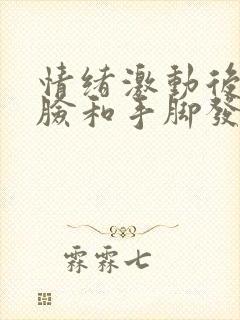 情绪激動後
臉和手脚發
霖霖七